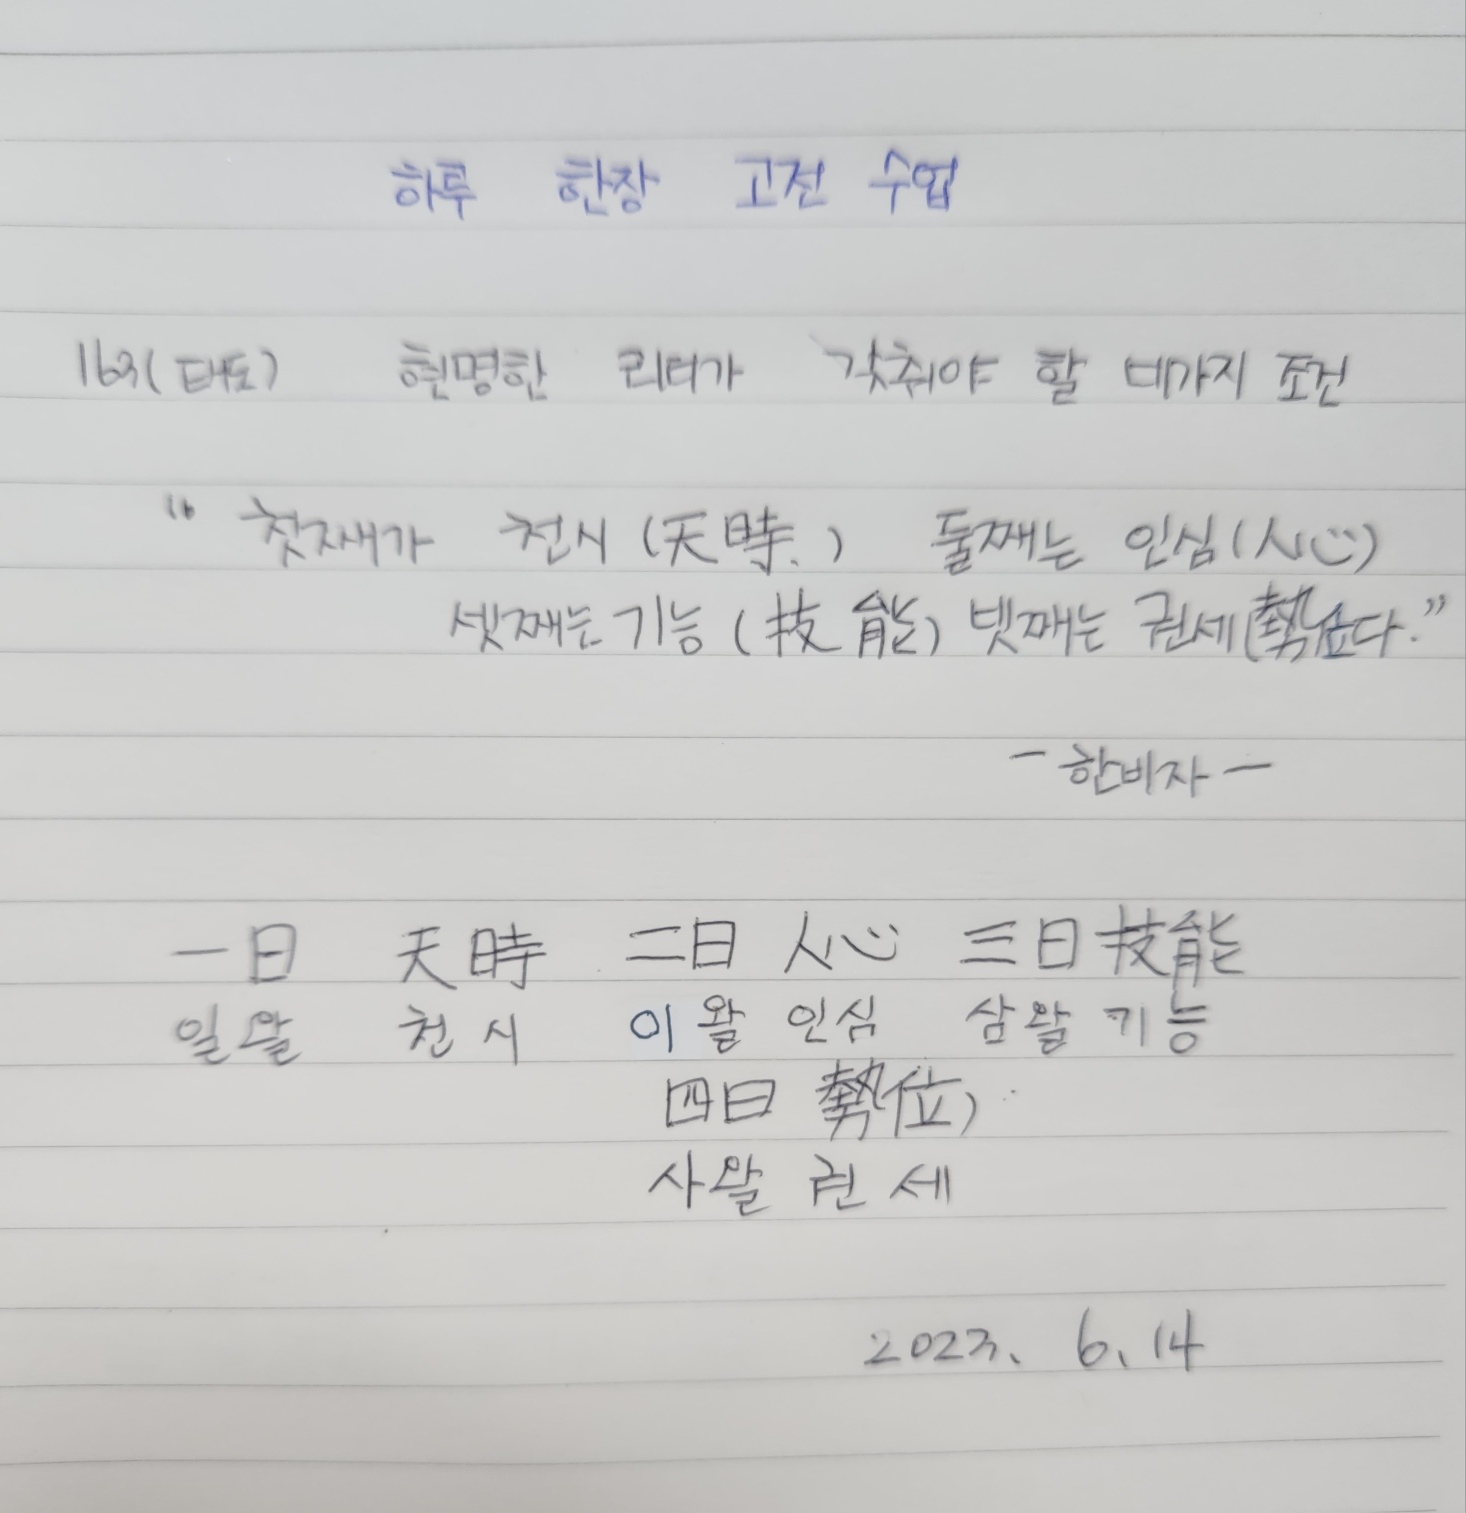 하루 한장 고전 수업
163(태도) 현명한 리더가 갖춰야 할 네가지 조건
"첫재가 천시(天時.) 둘째는 인심(人心)
셋째는 기능(技能) 넷째는 권세(勢位다."
- 한비자 -
一日 天時 二日 人心 三日 技能
일왈 천시 이왈 인심 삼왈 기능
四曰 勢位)
사왈 권세
2023. 6. 14